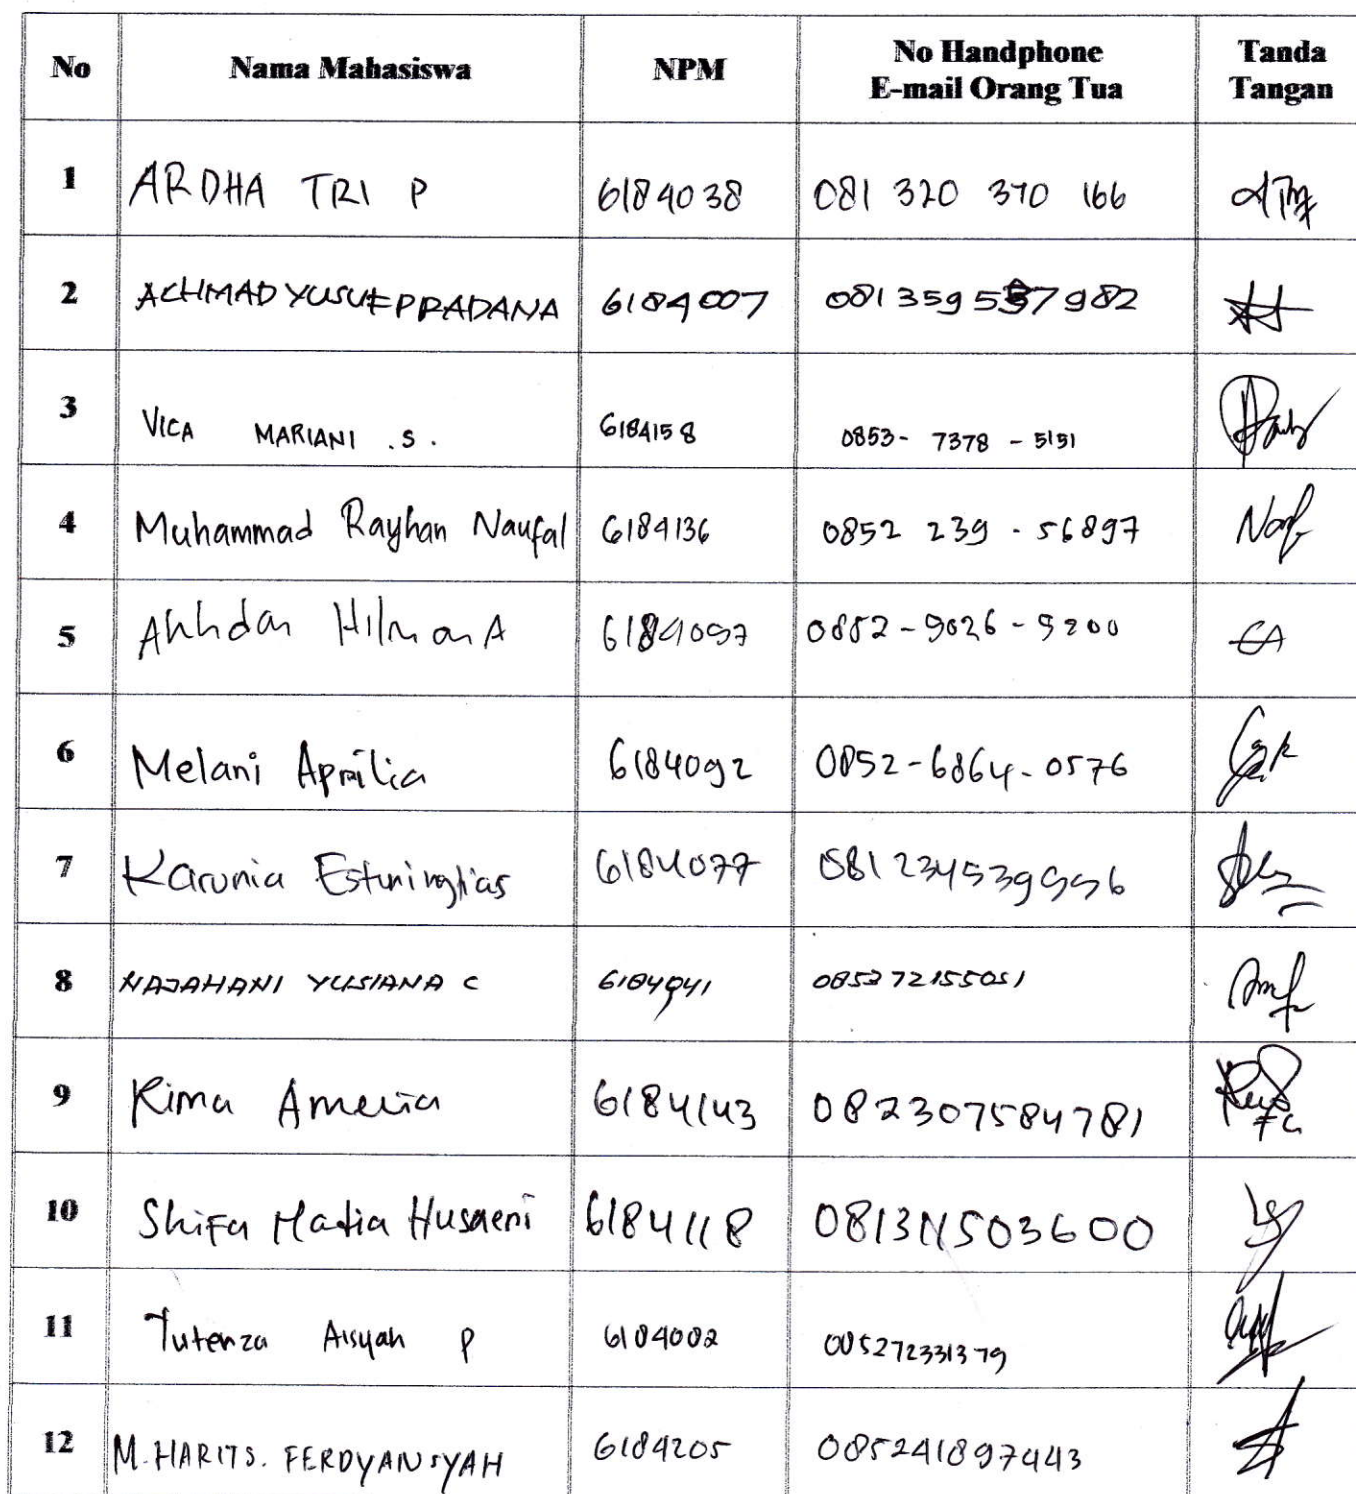 No Nama Mahasiswa NPM No Handphone Tanda
E-mail Orang Tua Tangan
1 ARDHA TRI P 6184038 081 320 370 166
2 ACHMAD YUSUF PRADANA 6184007 081359557982
3 VICA MARIANI .S. 6184158 0853- 7378 - 5151
4 Muhammad Rayhan Naufal 6184136 0852 239 - 56897
5 Hilman A 6184097 0852-9026-9200
6 Melani Aprilia 6184092 0852-6864-0576
7 Karunia Estuningtias 6184077 081234539996
8 NAJAHANI YUSIANA C 6184041 085272155051
9 Rima Amelia 6184143 082307584781
10 Shifa Husaeni 6184118 081311503600
11 Tutenza Aisyah P 6184002 085272331379
12 M. HARITS. FERDYANSYAH 6184205 085241897443